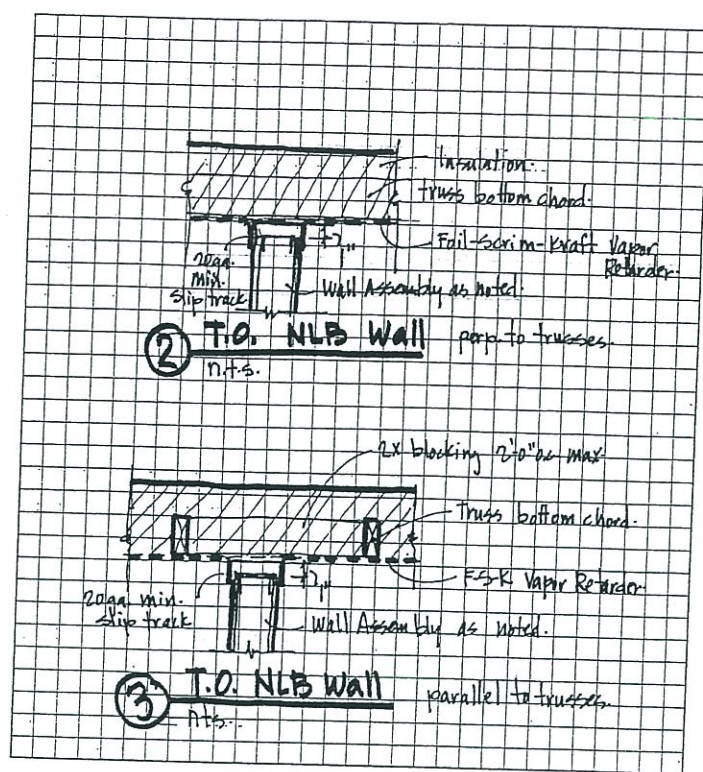 Insulation.
truss bottom chord.
Foil-Scrim-Kraft Vapor
Retarder.
1"
20ga.
min.
slip track
Wall Assembly as noted.
2 T.O. NLB Wall perp. to trusses.
n.t.s.
2x blocking 2'-0" o.c. max
truss bottom chord.
F-S-K Vapor Retarder
1"
20ga. min.
slip track
Wall Assembly as noted.
3 T.O. NLB Wall parallel to trusses.
nts.